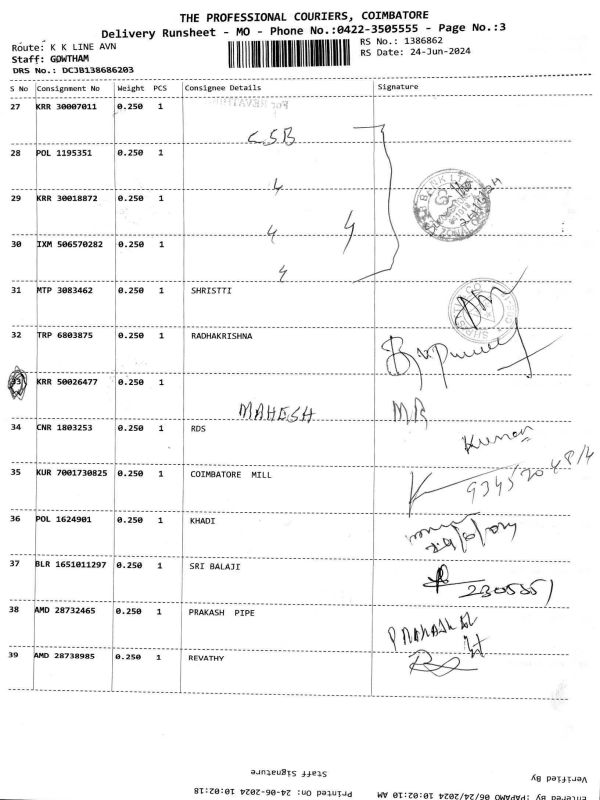 THE PROFESSIONAL COURIERS, COIMBATORE
Delivery Runsheet - MO - Phone No.:0422-3505555 - Page No.:3
Route: K K LINE AVN
RS No.: 1386862
Staff: GOWTHAM
RS Date: 24-Jun-2024
DRS No.: DCJB138686203
S No Consignment No Weight PCS Consignee Details Signature
27 KRR 30007011 0.250 1
CSB
28 POL 1195351 0.250 1
29 KRR 30018872 0.250 1
30 IXM 506570282 0.250 1
31 MTP 3083462 0.250 1 SHRISTTI
32 TRP 6803875 0.250 1 RADHAKRISHNA
33 KRR 50026477 0.250 1
MAHESH MR
34 CNR 1803253 0.250 1 RDS
Kumar
35 KUR 7001730825 0.250 1 COIMBATORE MILL
36 POL 1624901 0.250 1 KHADI
37 BLR 1651011297 0.250 1 SRI BALAJI
38 AMD 28732465 0.250 1 PRAKASH PIPE
39 AMD 28738985 0.250 1 REVATHY
Staff Signature
Verified By
Printed On: 24-06-2024 10:02:18
Entered By :PAPAMO 06/24/24 10:02:10 AM